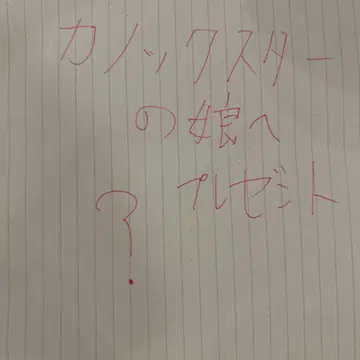 カノックスター
の娘へ
プレゼント
?